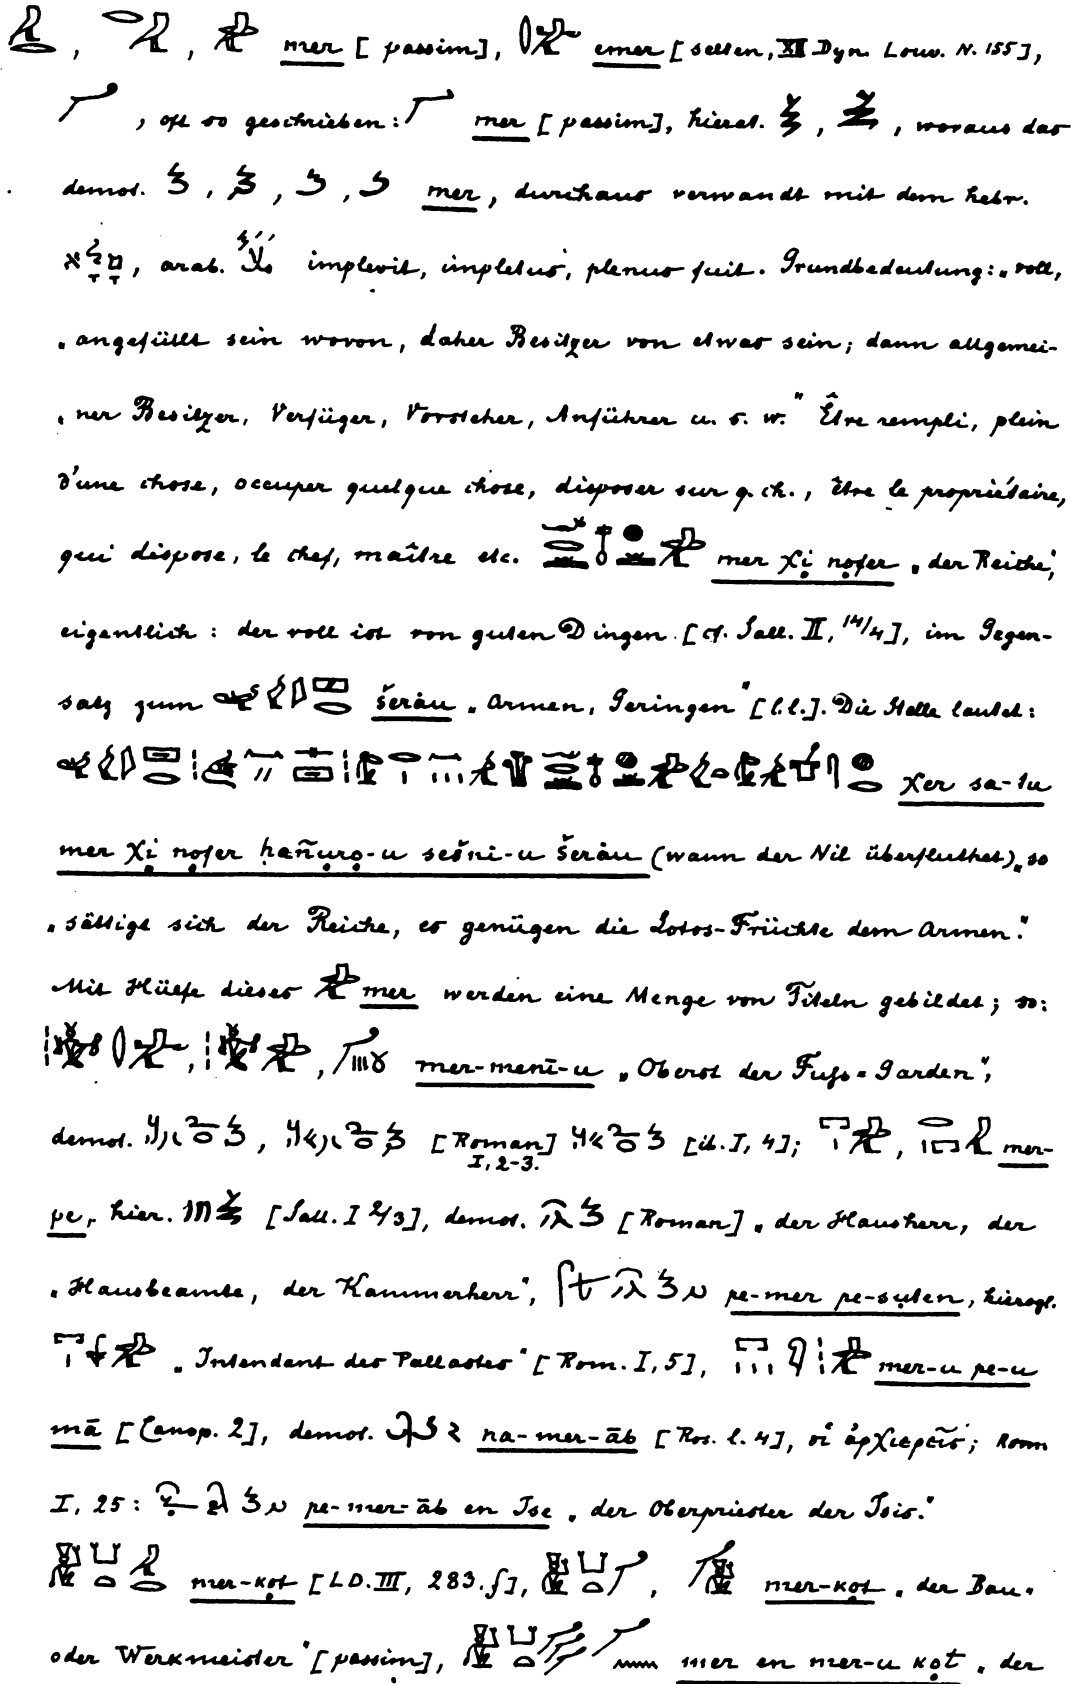 , , mer [passim], emer [selten, XII Dyn. Louv. N. 155],
, oft so geschrieben: mer [passim], hierat. , , woraus das
demot. , , , mer, durchaus verwandt mit dem hebr.
מָלָא, arab. implevit, impletus, plenus fuit. Grundbedeutung: „voll,
„angefüllt sein wovon, daher Besitzer von etwas sein; dann allgemei-
„ner Besitzer, Verfüger, Vorsteher, Anführer u. s. w." Être rempli, plein
d'une chose, occuper quelque chose, disposer sur q. ch., être le propriétaire,
qui dispose, le chef, maître etc. mer χi nofer „der Reiche",
eigentlich: der voll ist von guten Dingen [cf. Sall. II, 14/4], im Gegen-
satz zum šeràu „Armen, Geringen" [l.l.]. Die Stelle lautet:
χer sa-tu
mer χi nofer hañuro-u sešni-u šeràu (wann der Nil überfluthet) „so
„sättigt sich der Reiche, es genügen die Lotos-Früchte dem Armen."
Mit Hülfe dieses mer werden eine Menge von Titeln gebildet; so:
, , mer-menī-u „Oberst der Fuss-Garden",
demot. , [Roman I, 2-3.] [ib. I, 4]; , mer-
pe, hier. [Sall. I 2/3], demot. [Roman] „der Hausherr, der
„Hausbeamte, der Kammerherr", pe-mer pe-suten, hierogl.
„Intendant des Pallastes" [Rom. I, 5], mer-u pe-u
mā [Canop. 2], demot. na-mer-āb [Ros. l. 4], οἱ ἀρχιερεῖς; Rom
I, 25: pe-mer-āb en Ise „der Oberpriester der Isis."
mer-kot [LD. III, 283.f], , mer-kot „der Bau-
oder Werkmeister" [passim], mer en mer-u kot „der